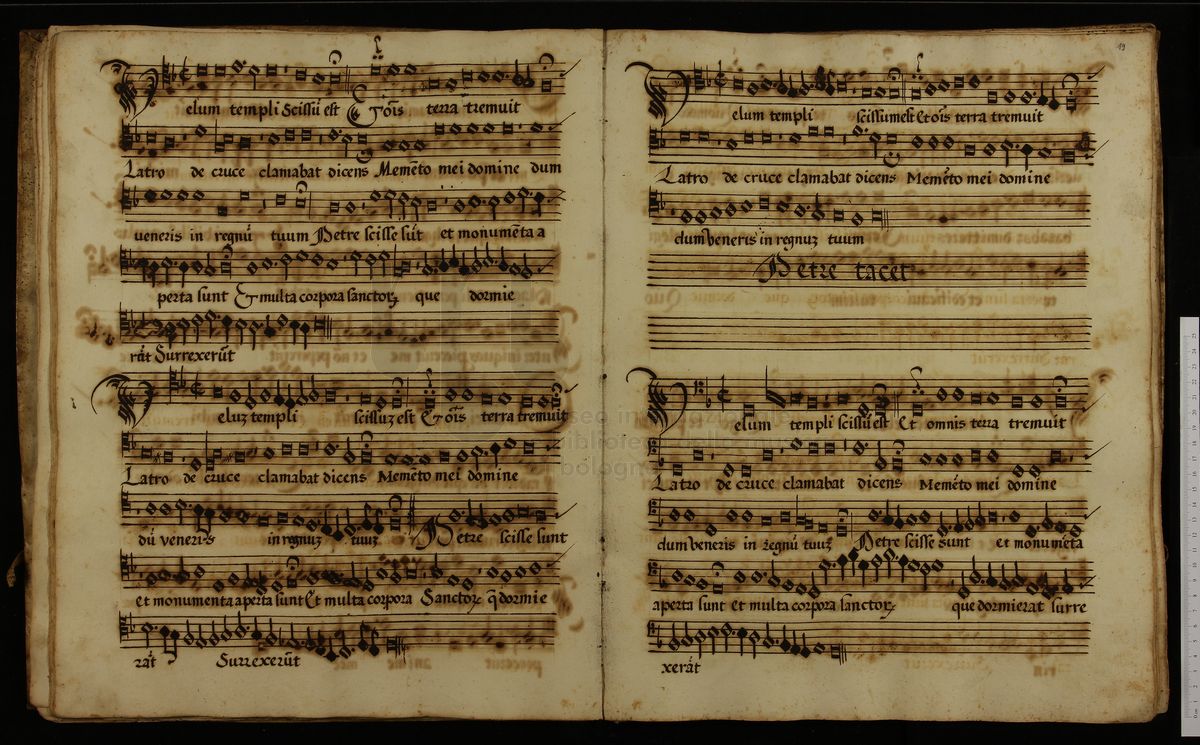 Velum templi Scissū est Et oīs terra tremuit
Latro de cruce clamabat dicens Memēto mei domine dum
veneris in regnū tuum Petre scisse sūt et monumēta a
perta sunt Et multa corpora sanctorꝝ que dormie
rāt Surrexerūt
Veluz templi scissuz est Et oīs terra tremuit
Latro de cruce clamabat dicens Memēto mei domine
dū veneris in regnuz tuuz Petre scisse sunt
et monumenta aperta sunt Et multa corpora Sanctorꝝ q̄ dormie
rāt Surrexerūt
19
Velum templi scissum est Et oīs terra tremuit
Latro de cruce clamabat dicens Memēto mei domine
dum veneris in regnuz tuum
Petre tacet
Velum templi scissū est Et omnis terra tremuit
Latro de cruce clamabat dicens Memēto mei domine
dum veneris in regnū tuuz Petre scisse sunt et monumēta
aperta sunt et multa corpora sanctorꝝ que dormierat surre
xerāt